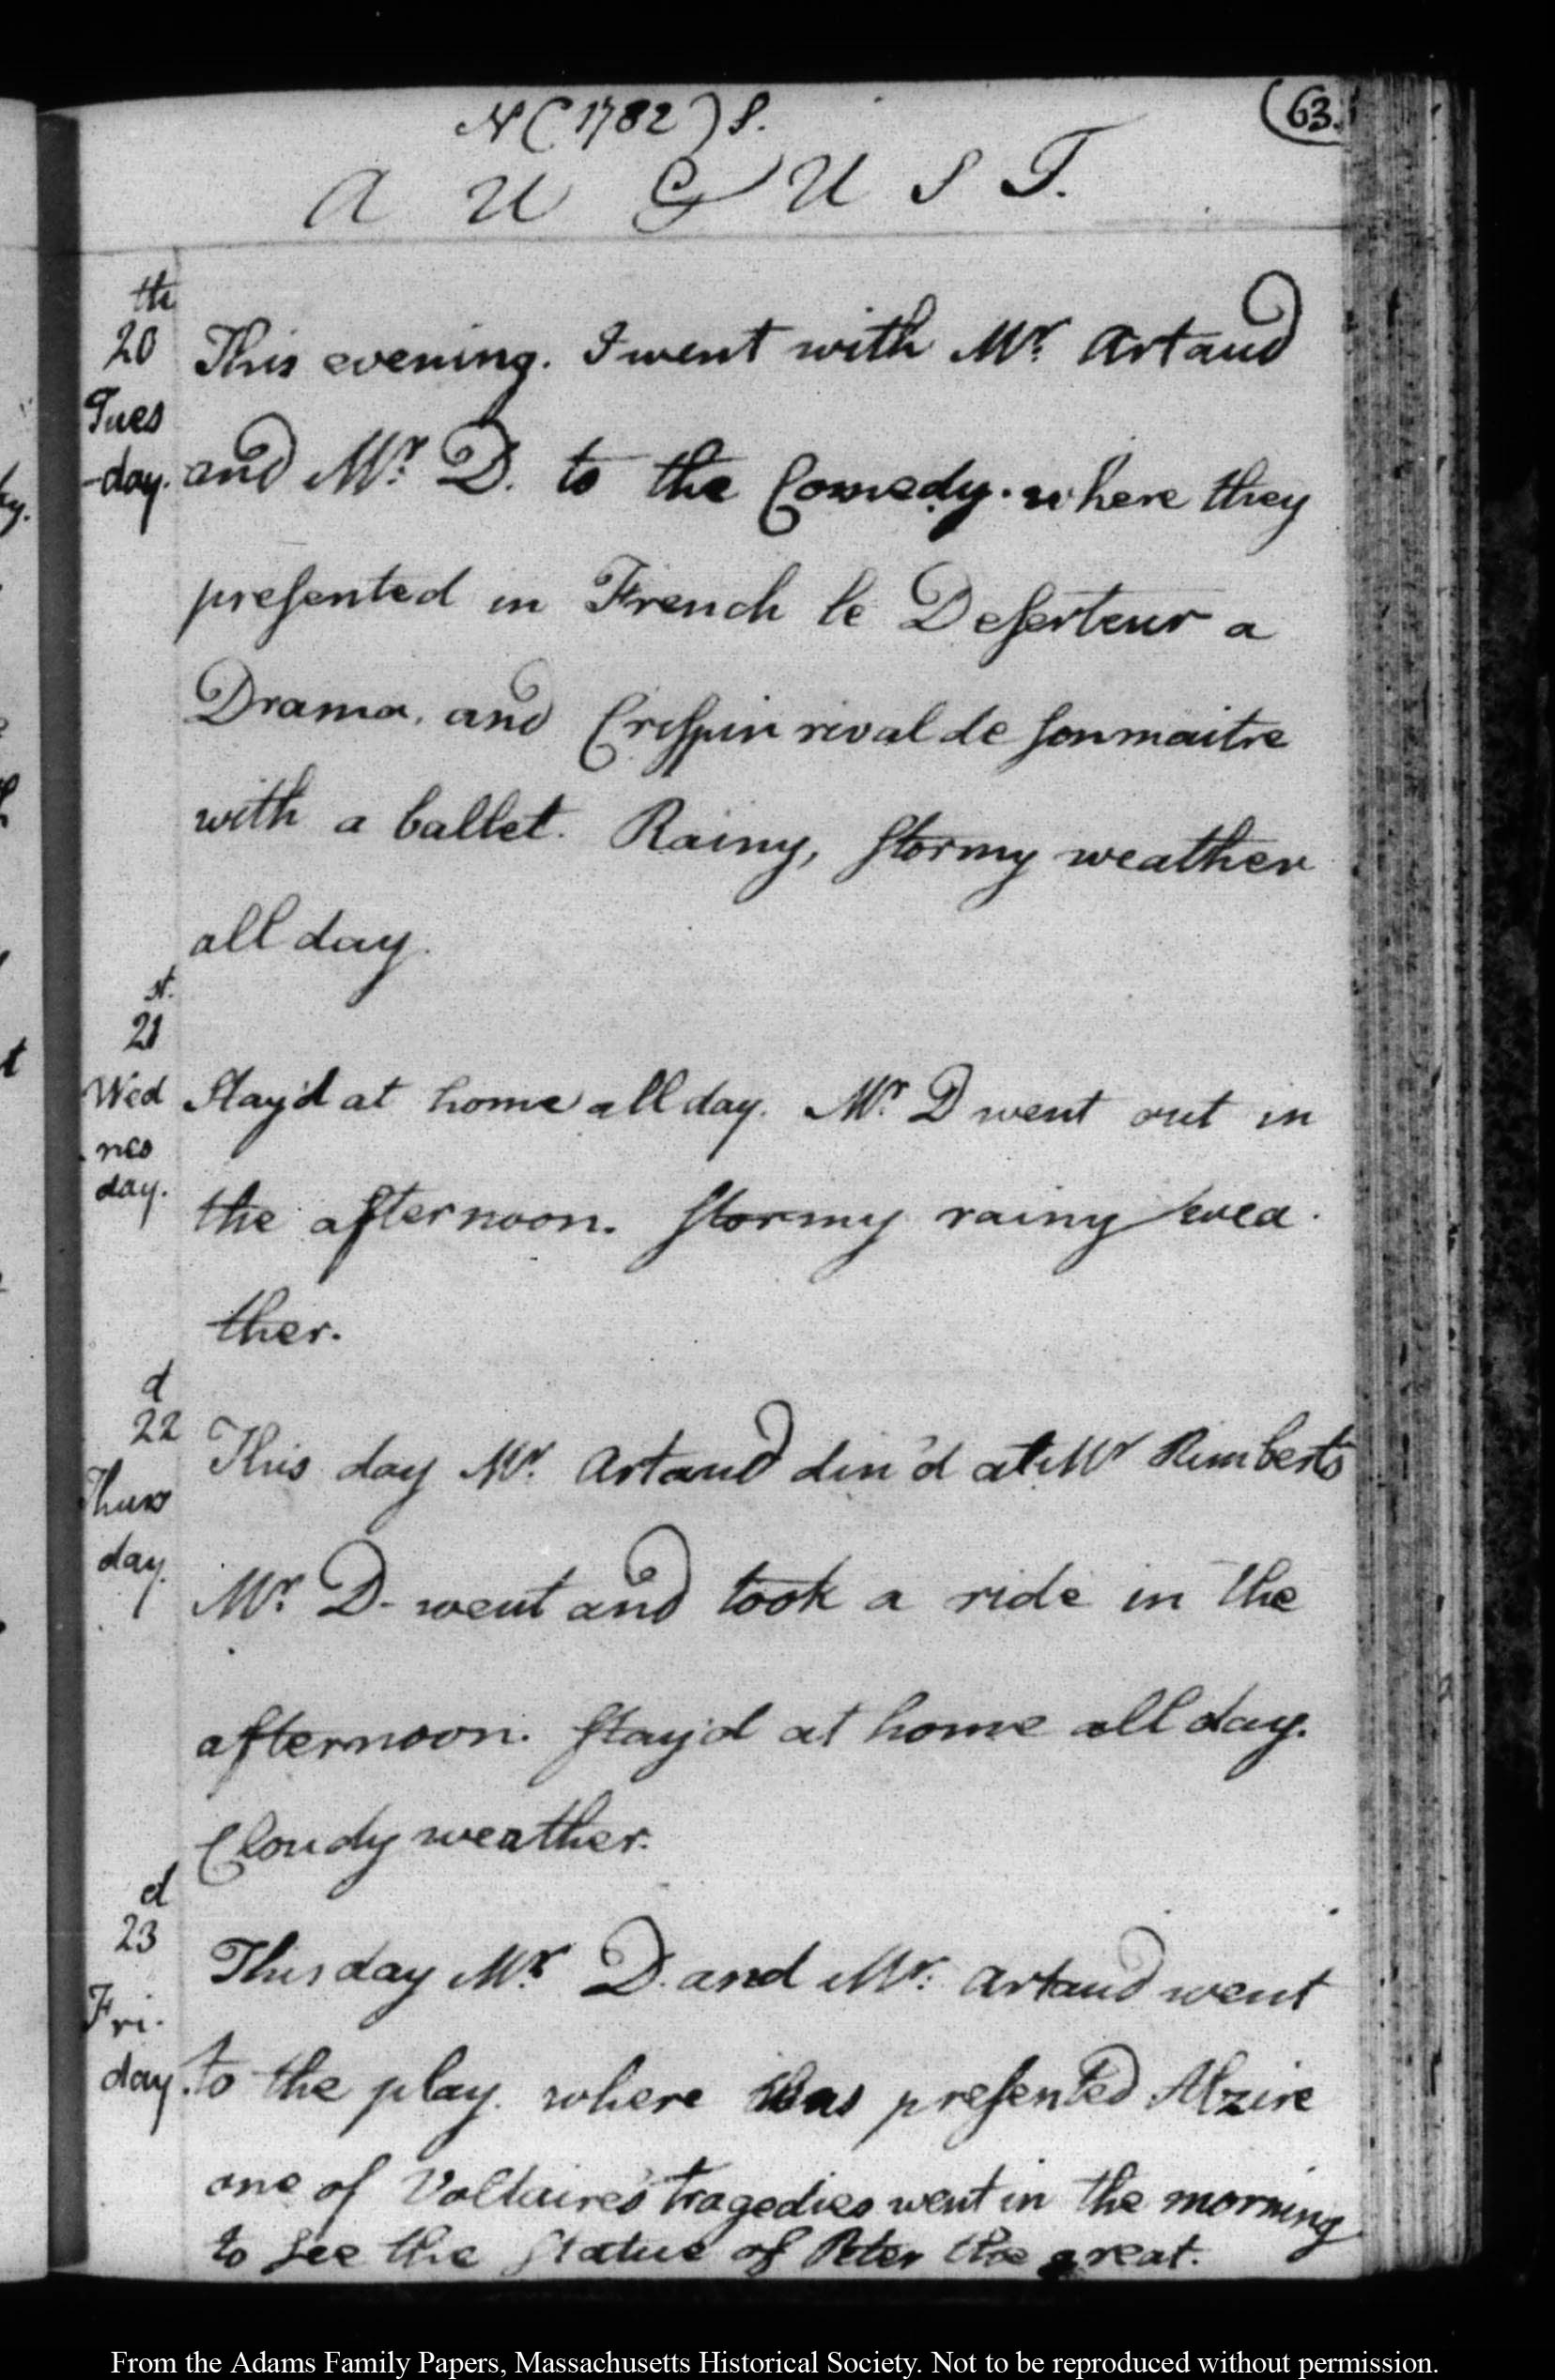 N (1782) S.
(63.
AUGUST.
th
20
Tues
-day.
This evening. I went with Mr. Artaud
and Mr. D. to the Comedy. where they
presented in French le Deserteur a
Drama, and Crispin rival de son maitre
with a ballet. Rainy, stormy weather
all day.
st.
21
Wed
nes
day.
Stay'd at home all day. Mr. D went out in
the afternoon. Stormy rainy wea
ther.
d
22
Thurs
day.
This day Mr. Artaud din'd at Mr Rimberts
Mr. D- went and took a ride in the
afternoon. Stay'd at home all day.
Cloudy weather.
d
23
Fri-
day.
This day Mr. D. and Mr. Artaud went
to the play. where was presented Alzire
one of Voltaire's tragedies went in the morning
to see the Statue of Peter the great.
From the Adams Family Papers, Massachusetts Historical Society. Not to be reproduced without permission.